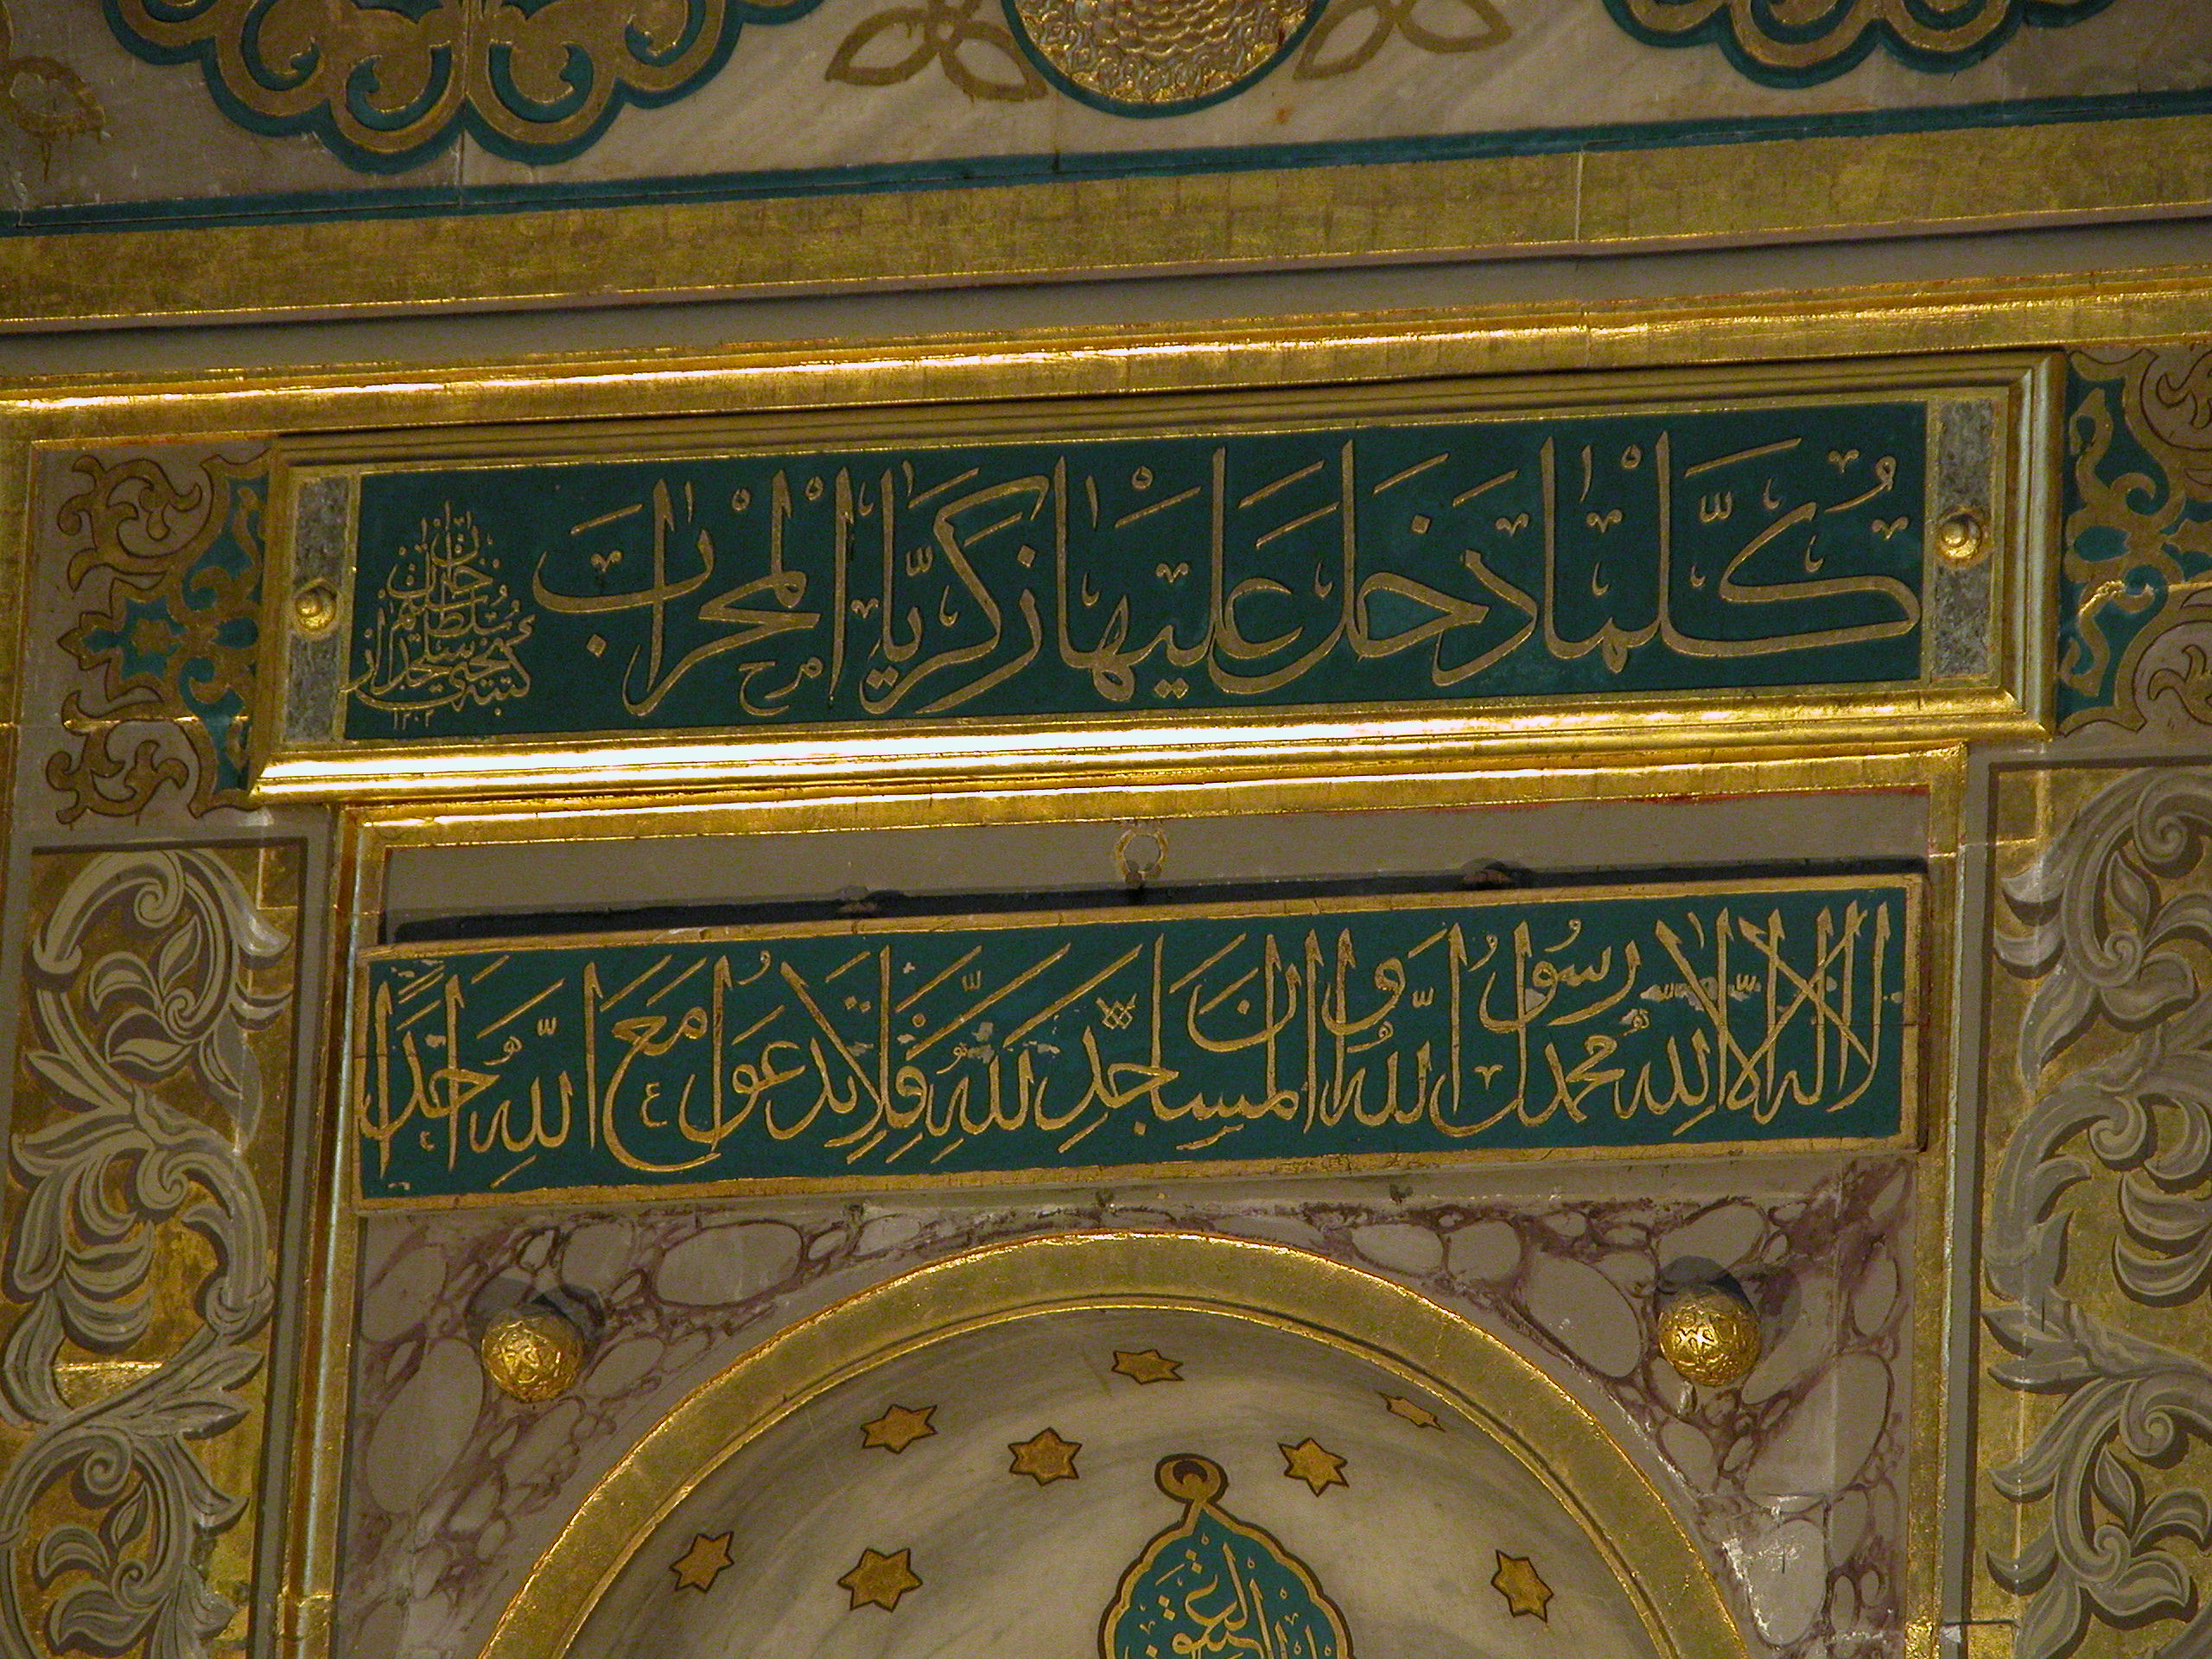 كُلَّمَا دَخَلَ عَلَيْهَا زَكَرِيَّا الْمِحْرَابَ
كتبه
١٣٠٢
لا اله الا الله محمد رسول الله وان المسجد لله فلا تدعوا مع الله احدا